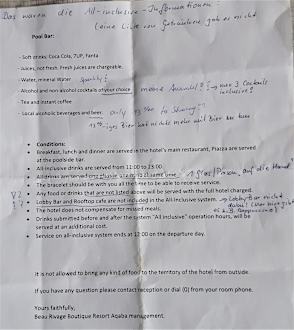 Das waren die All-inclusive-Informationen
(eine Liste von Getränken gab es nicht
Pool Bar:
- Soft drinks: Coca Cola, 7UP, Fanta
- Juices, not fresh. Fresh juices are chargeable.
- Water, mineral Water
- Alcohol and non alcohol cocktails of your choice meine Auswahl? → nur 3 Cocktails inclusive!
- Tea and instant coffee
- Local alcoholic beverages and beer. only
Bier hat nichts mehr mit Bier zu tun
• Conditions:
• Breakfast, lunch and dinner are served in the hotel's main restaurant, Piazza are served
at the poolside bar.
• All-inclusive drinks are served from 11:00 to 23:00.
• All drinks are served one glass at a time 1 glas/Person "auf die Hand"
• The bracelet should be with you all the time to be able to receive service.
• Any food or drinks that are not listed above will be served with the full hotel charged.
• Lobby Bar and Rooftop cafe are not included in the All-Inclusive system. → Lobbybar nicht
• The hotel does not compensate for missed meals.
• Drinks submitted before and after the system "All inclusive" operation hours, will be
served at an additional cost.
• Service on all-inclusive system ends at 12:00 on the departure day.
It is not allowed to bring any kind of food to the territory of the hotel from outside.
If you have any question please contact reception or dial (0) from your room phone.
Yours faithfully,
Beau Rivage Boutique Resort Aqaba management.